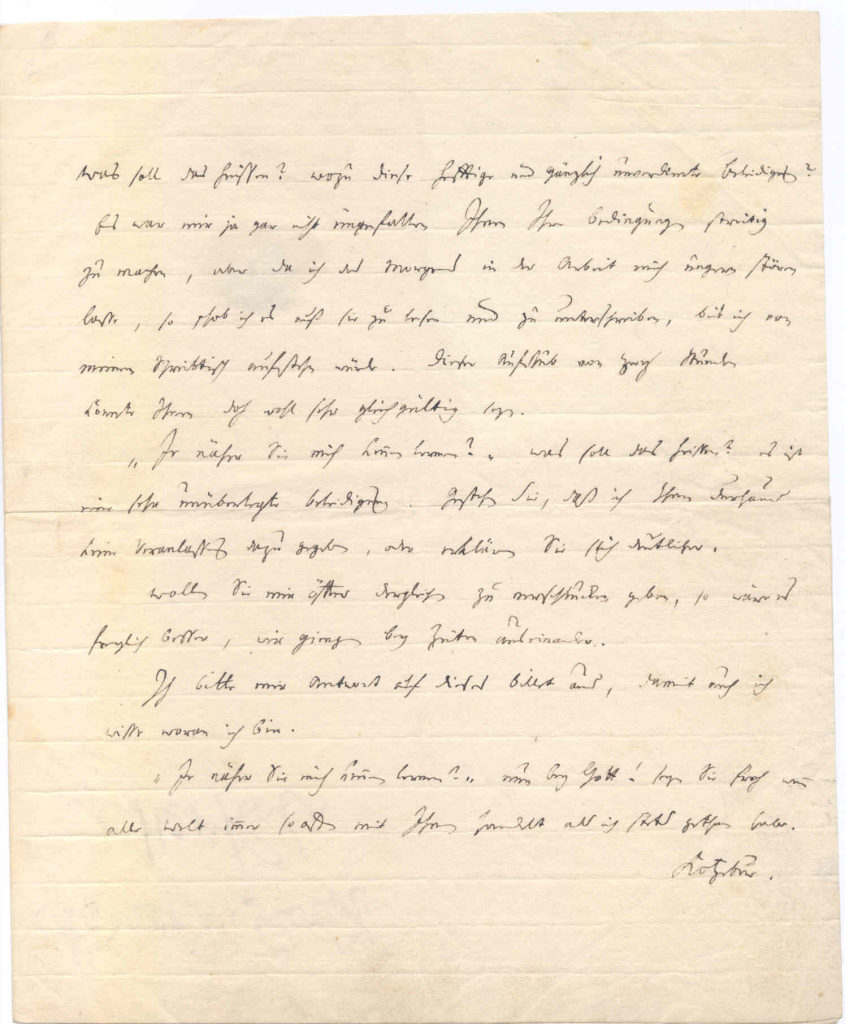 Was soll das heissen? wozu diese heftige und gänzlich unverdiente Beleidigung?
Es war mir ja gar nicht eingefallen Ihnen Ihre Bedingungen streitig
zu machen, aber da ich des Morgens in der Arbeit mich ungern stören
lasse, so schob ich es auf sie zu lesen und zu unterschreiben, bis ich von
meinem Schreibtisch aufstehen würde. Dieser Aufschub von zwey Stunden
konnte Ihnen doch wohl sehr gleichgültig seyn.
„Je näher Sie mich kennen lernen?„ was soll das heissen? es ist
eine sehr unüberlegte Beleidigung. Gestehen Sie, daß ich Ihnen durchaus
keine Veranlassung dazu gegeben, oder erklären Sie sich deutlicher.
Wollen Sie mir öfter dergleichen zu verschlucken geben, so wäre es
freylich besser, wir giengen bey Zeiten auseinander.
Ich bitte mir Antwort auf dieses Billet aus, damit auch ich
wisse woran ich bin.
„Je näher Sie mich kennen lernen?„ nun bey Gott! seyn Sie froh wenn
alle Welt immer so mit Ihnen handelt als ich stets gethan habe.
Kotzebue.